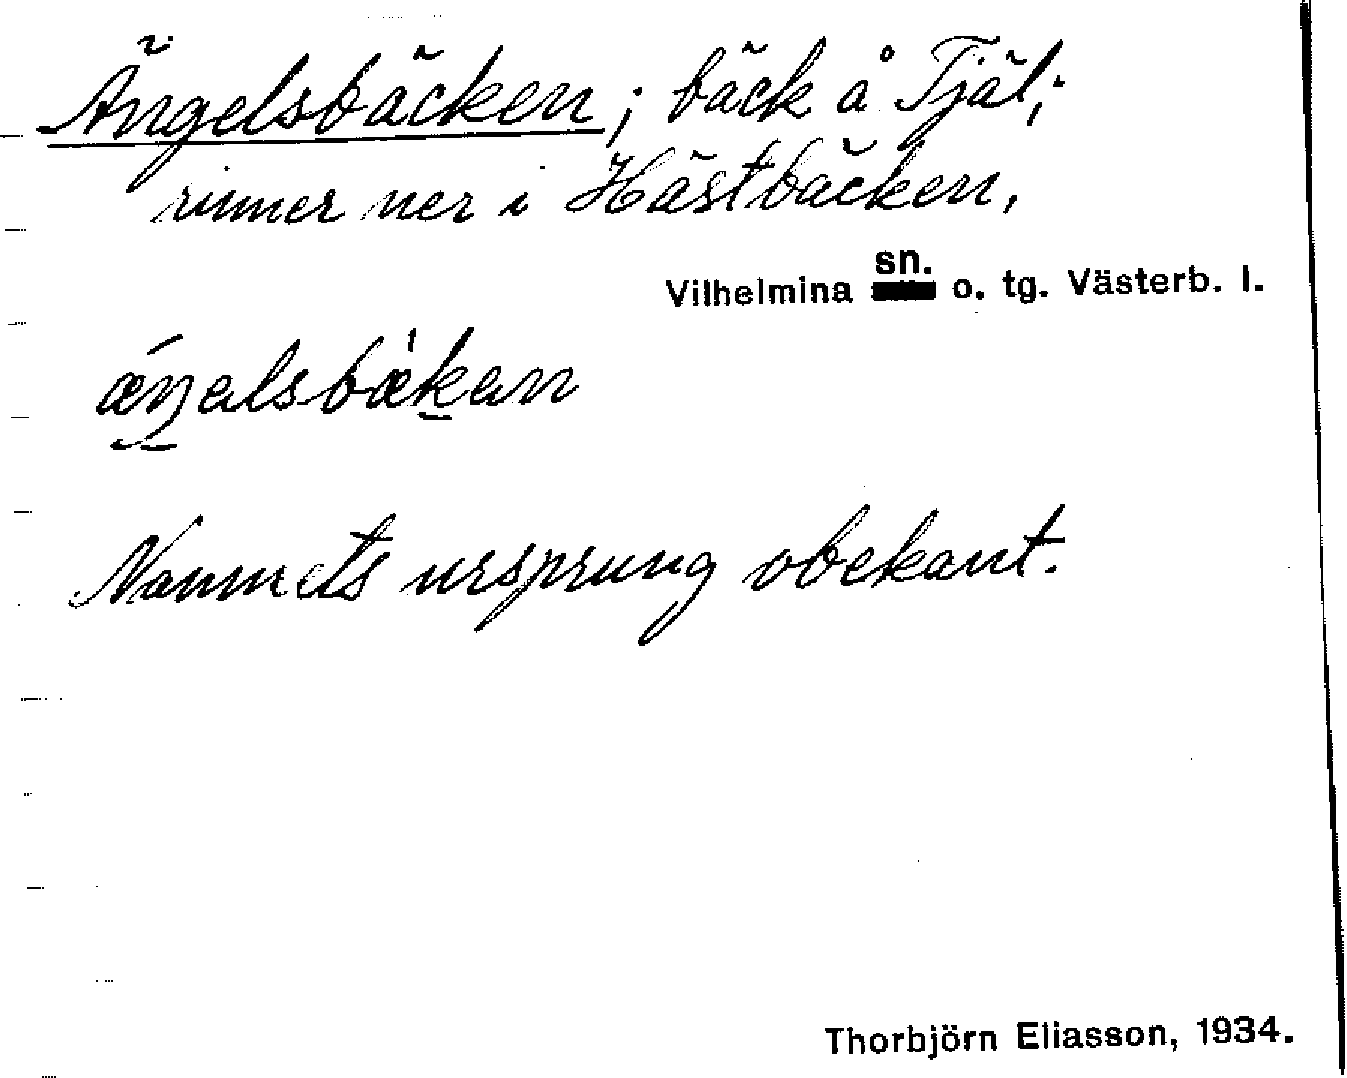 Ängelsbäcken; bäck å Tjäl;
rinner ner i Hästbäcken,
Vilhelmina sn. o. tg. Västerb. l.
ǽŋəlsbæ̀kən
Namnets ursprung obekant.
Thorbjörn Eliasson, 1934.